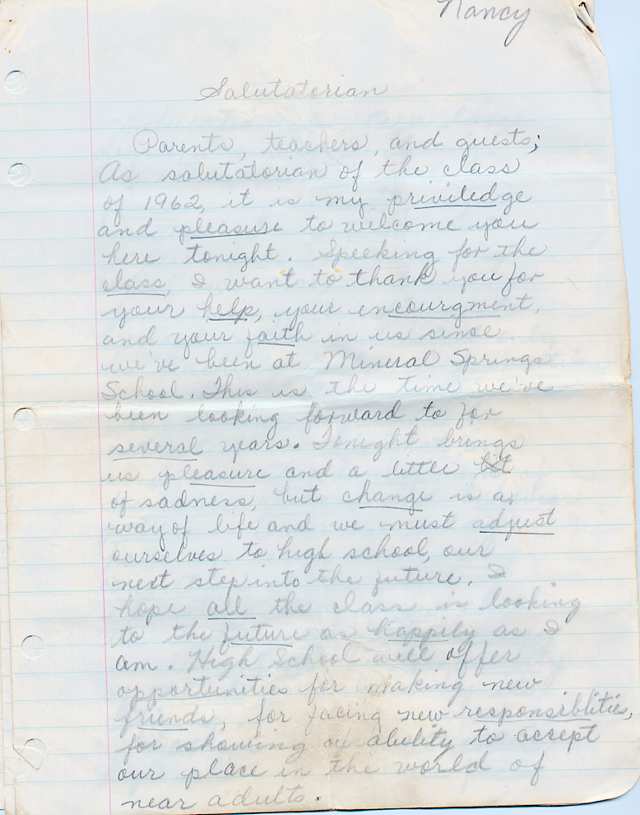 Nancy
Salutatorian
Parents, teachers, and guests;
As salutatorian of the class
of 1962, it is my priviledge
and pleasure to welcome you
here tonight. Speeking for the
class, I want to thank you for
your help, your encourgment,
and your faith in us since
we've been at Mineral Springs
School. This is the time we've
been looking forward to for
several years. Tonight brings
us pleasure and a little bit
of sadness, but change is a
way of life and we must adjust
ourselves to high school, our
next step into the future. I
hope all the class is looking
to the future as happily as I
am. High School will offer
opportunities for making new
friends, for facing new responsiblities,
for showing our ability to accept
our place in the world of
near adults.